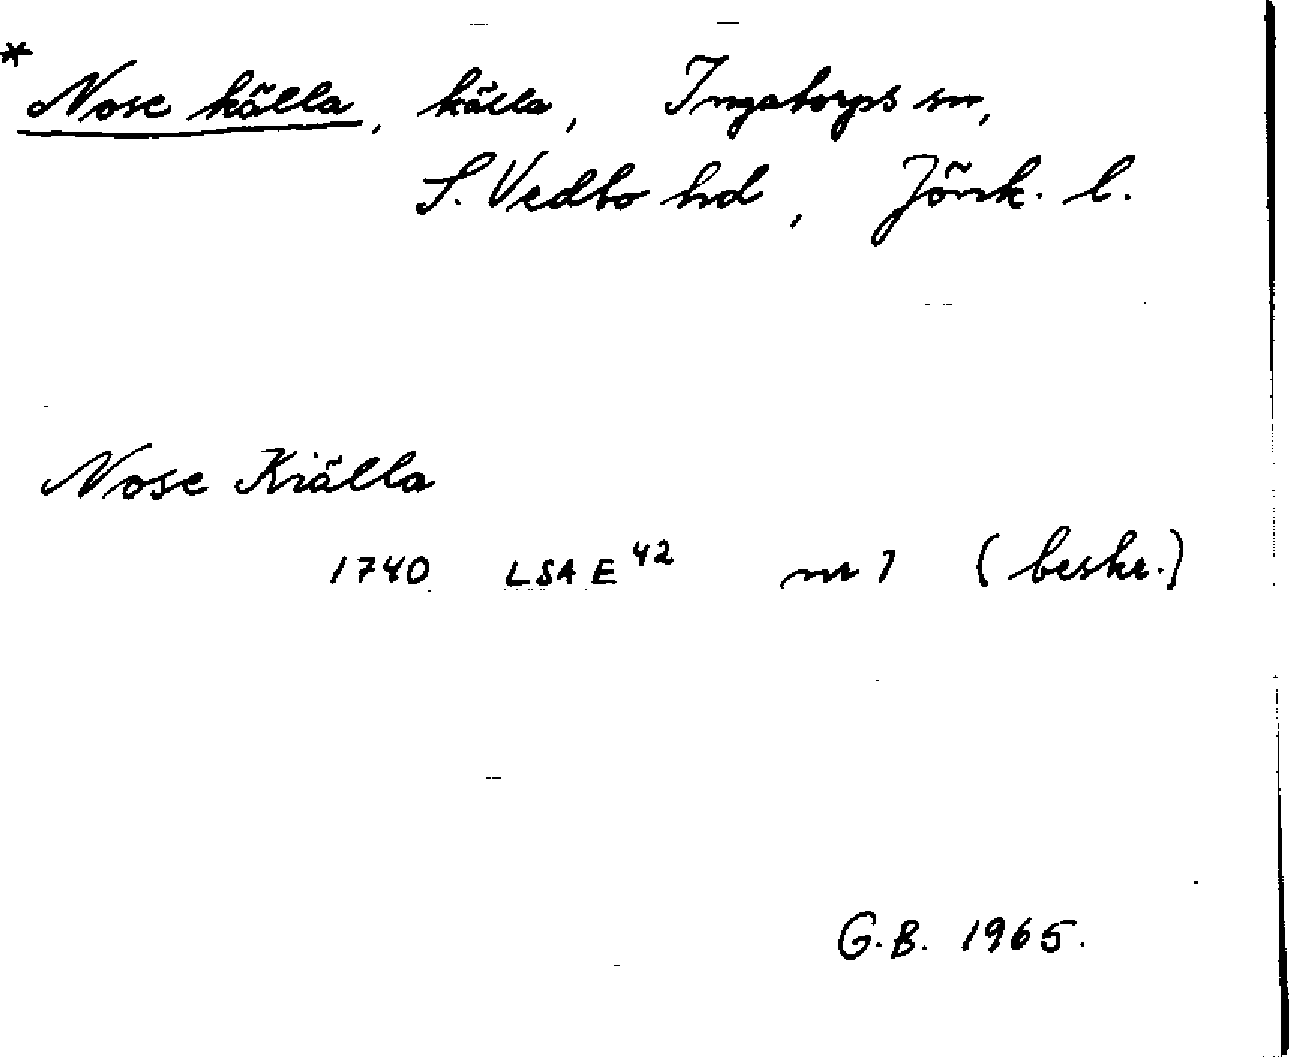 * Nose källa, källa, Ingatorps sn,
S. Vedbo hd, Jönk. l.
Nose Kiälla
1740 LSA E 42 nr 1 (beskr.)
G.B. 1965.